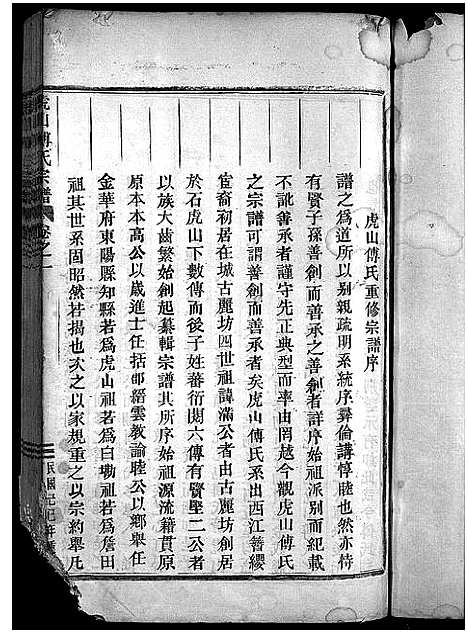 虎山傅氏重修宗譜序
譜之為道所以别親疏明系統序彛倫講惇睦也然亦恃
有賢子孫善創而善承之善創者詳序始祖派别而紀載
不訛善承者謹守先正典型而率由罔越今觀虎山傅氏
之宗譜可謂善創而善承者矣虎山傅氏系出西江簪纓
宦裔初居在城古麗坊四世祖諱滿公者由古麗坊創居
於石虎山下數傳而後子姓蕃衍閱六傳有賢堊二公者
以族大齒繁始創起纂輯宗譜其所序始祖源流籍貫原
原本本高公以歲進士任括郡縉雲教諭睦公以鄉舉任
金華府東陽縣知縣若為虎山祖若為白墈祖若為詹田
祖其世系固昭然若揭也次之以家規重之以宗約舉凡
虎山傅氏宗譜
卷之一
民國己巳年重